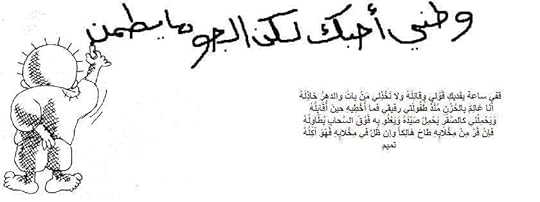 وطني أحبك لكن الجو ما يطمن
قفي ساعة يفديك قولي وقائله ولا تخذلي من بات والدهر خاذله
أنا عالم بالحزن منذ طفولتي رفيقي فما أخطيه حين أقابله
ويحملني كالصقر يحمل صيده ويعلو به فوق السحاب يطاوله
فإن فر من مخلابه طاح هالكا وإن ظل في مخلابه فهو آكله
تميم